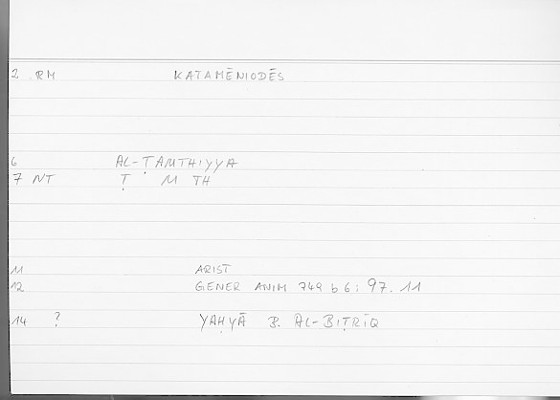 2 RM KATAMĒNIODĒS
6 AL-ṬAMTHIYYA
7 NT Ṭ M TH
11 ARIST
12 GENER ANIM 749 b 6; 97.11
14 ? YAḤYĀ B. AL-BIṬRĪQ